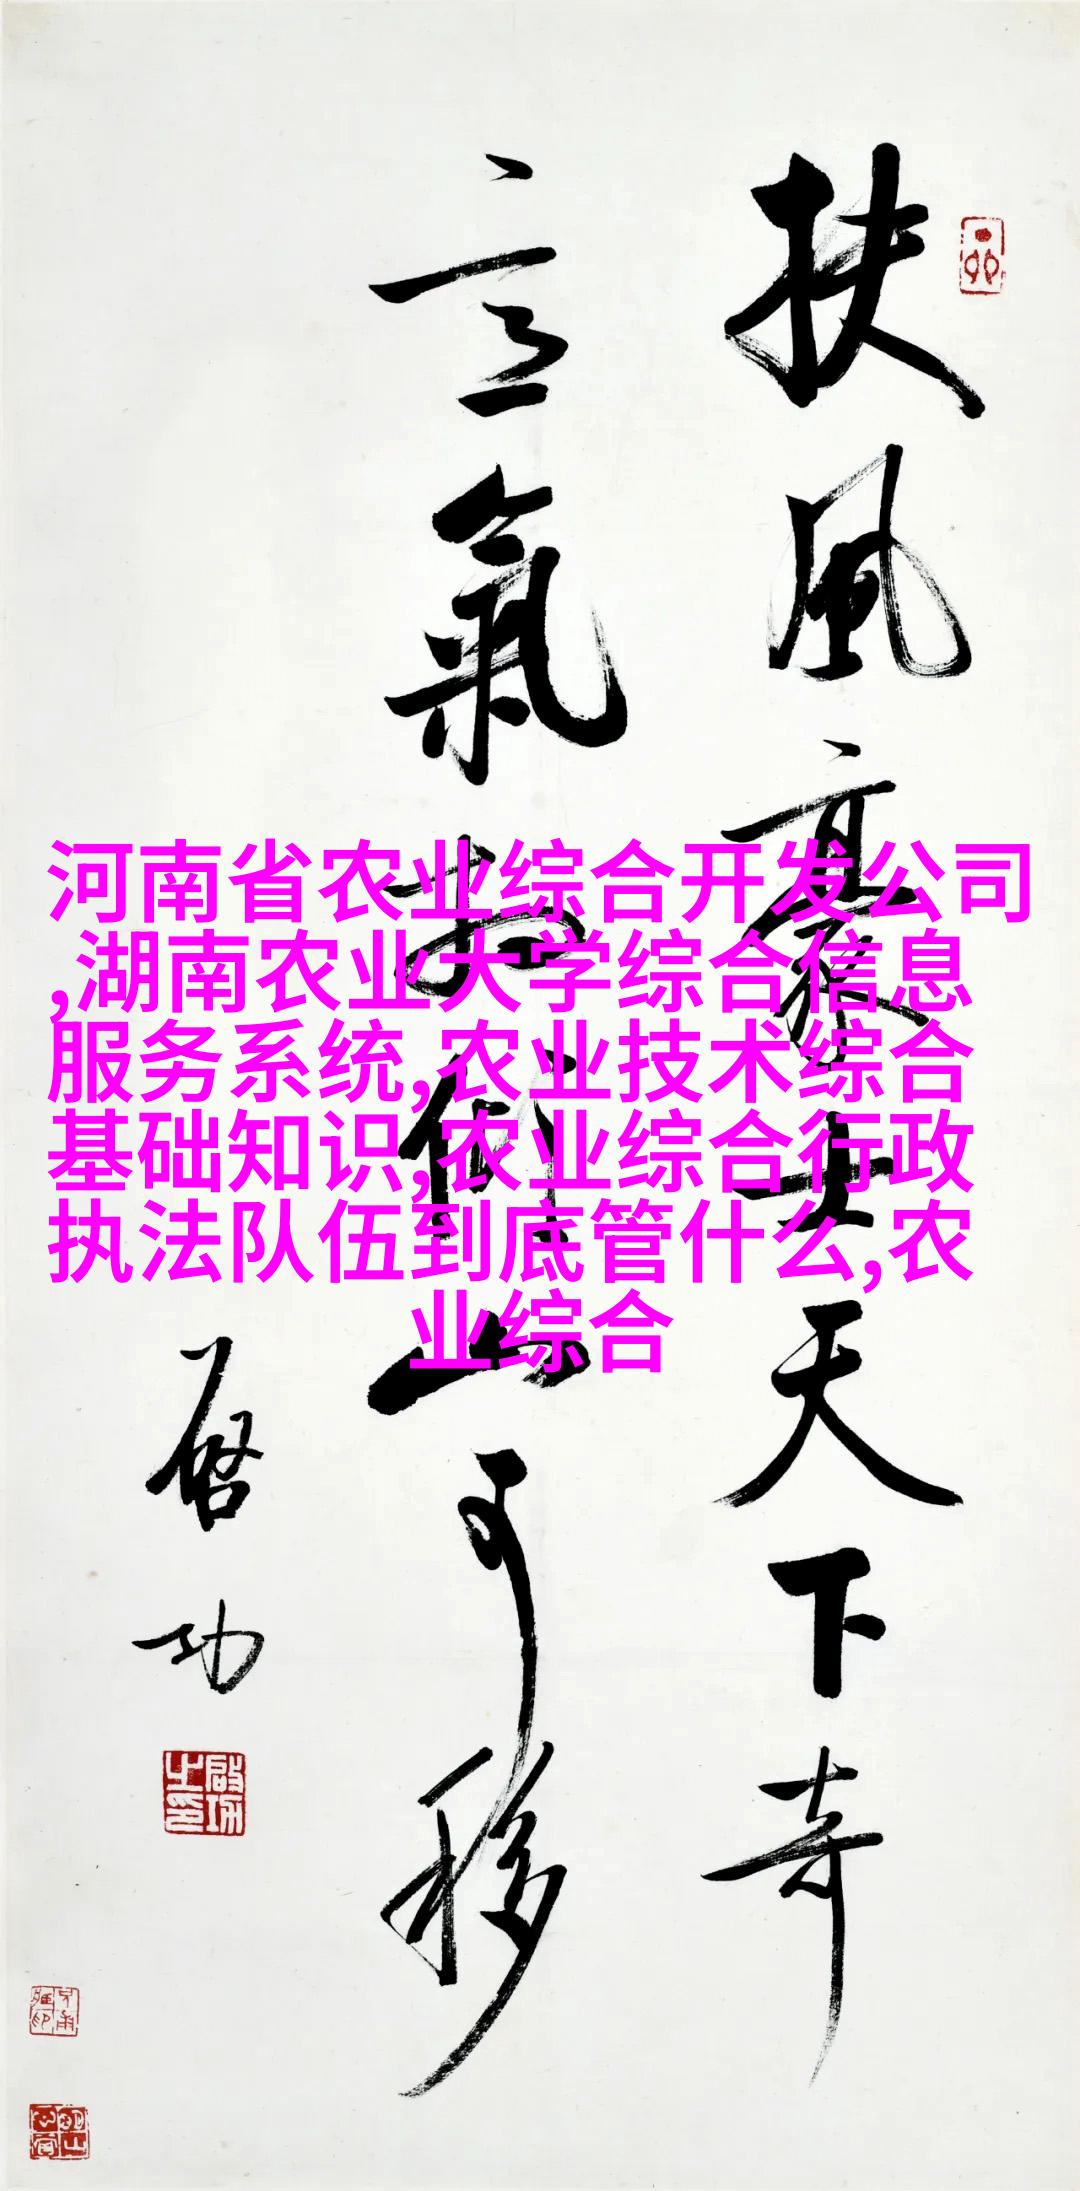 扶風豪士天下奇
意氣相傾山可移
啓功
啟功之印
河南省农业综合开发公司
,湖南农业大学综合信息
服务系统,农业技术综合
基础知识,农业综合行政
执法队伍到底管什么,农
业综合